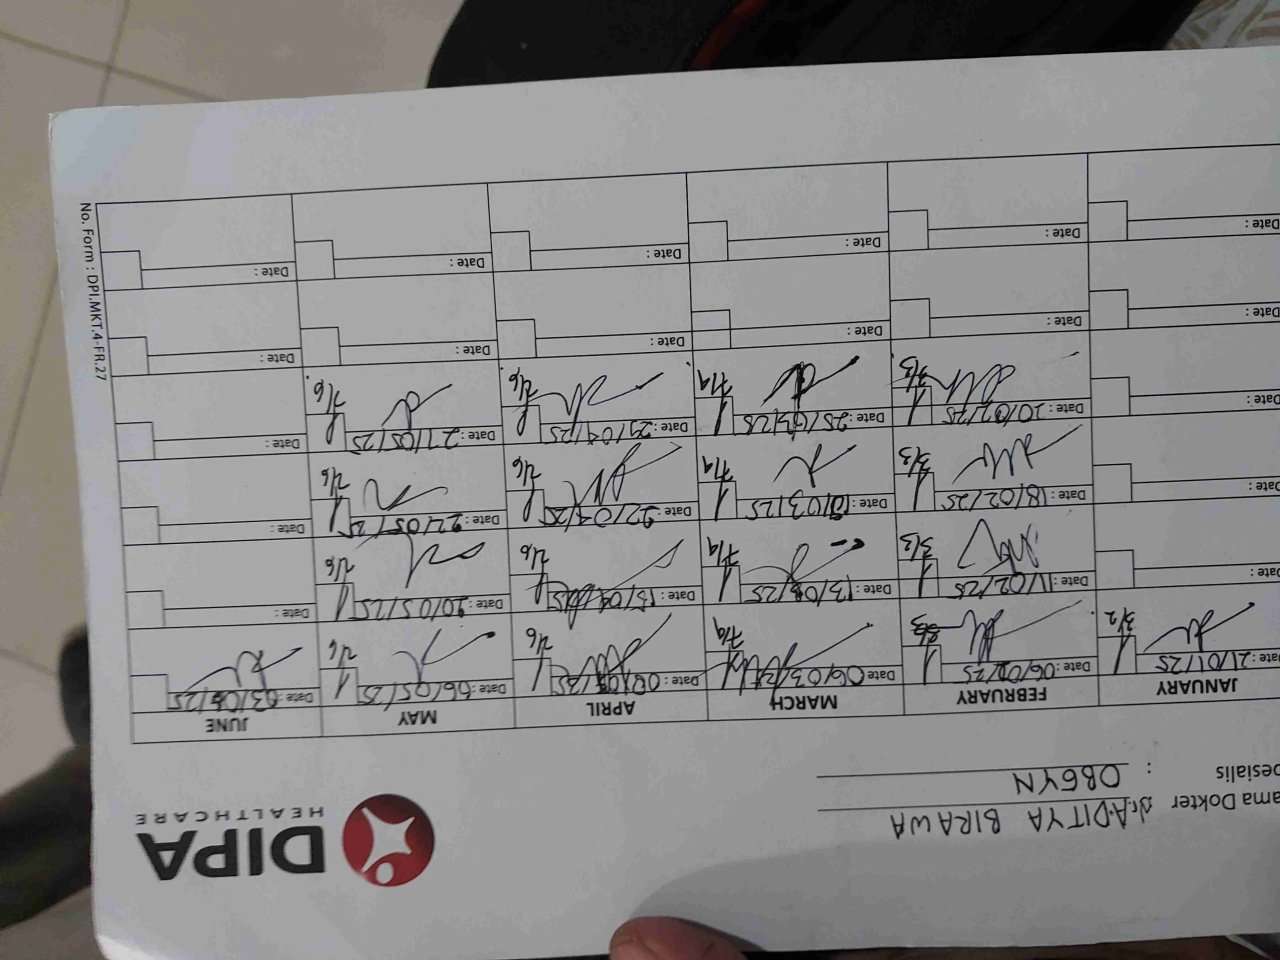 DIPA
HEALTHCARE
ama Dokter dr. ADITYA BIRAWA
pesialis : OBGYN
JANUARY FEBRUARY MARCH APRIL MAY JUNE
Date: 21/01/25 Date: 06/02/25 Date: 06/03/25 Date: Date: 06/05/25 Date: 03/06/25
3/2 3/3 7/4 2/6 2/6
Date: Date: 11/02/25 Date: 13/03/25 Date: 15/04/25 Date: 20/05/25 Date:
3/3 7/4 2/6 2/6
Date: Date: 18/02/25 Date: 18/03/25 Date: 22/04/25 Date: 22/05/25 Date:
3/3 7/4 2/6 2/6
Date: Date: 20/02/25 Date: 25/03/25 Date: 29/04/25 Date: 27/05/25 Date:
3/3 7/4 2/6 2/6
Date: Date: Date: Date: Date: Date:
Date: Date: Date: Date: Date: Date:
No. Form : DPI.MKT.4-FR.27